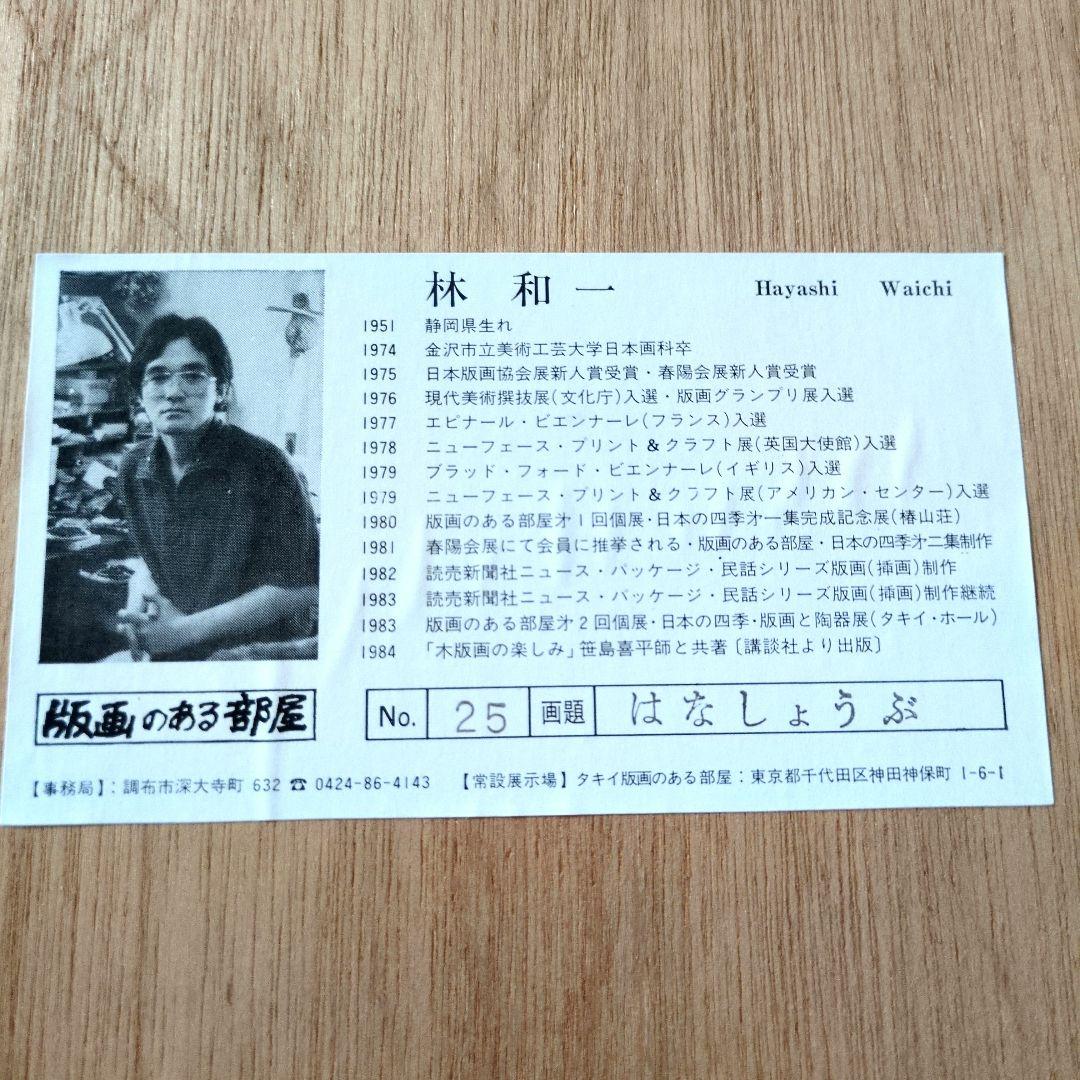 林 和一 Hayashi Waichi
1951 静岡県生れ
1974 金沢市立美術工芸大学日本画科卒
1975 日本版画協会展新人賞受賞・春陽会展新人賞受賞
1976 現代美術撰抜展(文化庁)入選・版画グランプリ展入選
1977 エピナール・ビエンナーレ(フランス)入選
1978 ニューフェース・プリント&クラフト展(英国大使館)入選
1979 ブラッド・フォード・ビエンナーレ(イギリス)入選
1979 ニューフェース・プリント&クラフト展(アメリカン・センター)入選
1980 版画のある部屋才1回個展・日本の四季才一集完成記念展(椿山荘)
1981 春陽会展にて会員に推挙される・版画のある部屋・日本の四季才二集制作
1982 読売新聞社ニュース・パッケージ・民話シリーズ版画(挿画)制作
1983 読売新聞社ニュース・パッケージ・民話シリーズ版画(挿画)制作継続
1983 版画のある部屋才2回個展・日本の四季・版画と陶器展(タキイ・ホール)
1984 「木版画の楽しみ」笹島喜平師と共著〔講談社より出版〕
版画のある部屋
No. 25 画題 はなしょうぶ
【事務局】:調布市深大寺町 632 ☎ 0424-86-4143 【常設展示場】タキイ版画のある部屋:東京都千代田区神田神保町 1-6-1